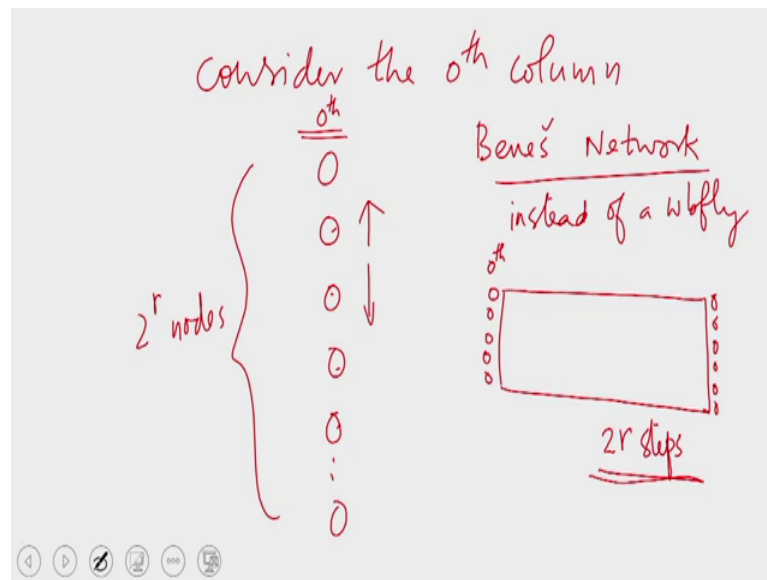 Consider the 0th column
0th
2^r nodes
Beneš Network
instead of a wbfly
0th
2r steps